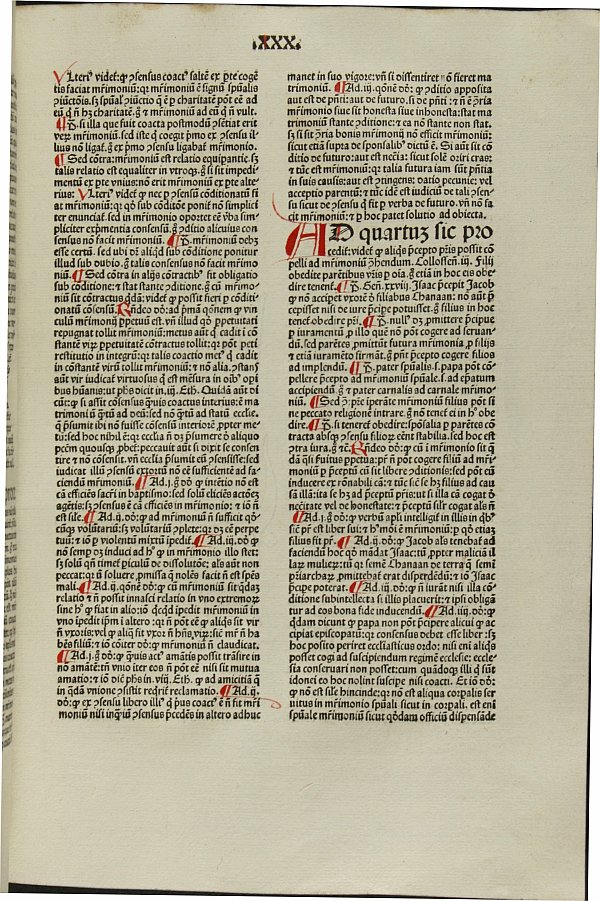 .XXX.
VLteri⁹ videt᷑ ꝙ ↄsensus coact⁹ saltē ex ꝑte cogē
tis faciat mr̄imoniū: qꝛ mr̄imoniū ē signū spūalis
ē ad
eū qͥ nō hꝫ charitatē. g̊ ⁊ mr̄imoniū ad eū qͥ nō vult.
si illa que fuit coacta postmodū ↄsētiat erit
verū mr̄imoniū. sed iste qͥ coegit pͥmo ex ↄsensu il
lius nō ligat᷑. g̊ ex pͥmo ↄsensu ligabat᷑ mr̄imonio.
¶ Sed cōtra: mr̄imoniū est relatio equipantie. sꝫ
talis relatio est equaliter in vtroqꝫ. g̊ si sit impedi
mentū ex ꝑte vnius: nō erit mr̄imoniū ex ꝑte alte
rius: VLteri⁹ videt᷑ ꝙ nec ꝑ ↄsensū cōditionatū si
at mr̄imoniū: qꝛ qð sub cōditōe ponit᷑ nō simplici
ter enunciat᷑. sed in mr̄imonio oportet eē v̄ba sim
pliciter exp̄mentia consensū. g̊ ↄditio alicuius con
sensus nō facit mr̄imoniū. mr̄imoniū debꝫ
esse certū. sed ubi dr̄ aliqͥd sub cōditione ponitur
illud sub dubio. g̊ talis consensus nō facit mr̄imo
niū. ¶ Sed cōtra in alijs cōtractib⁹ fit obligatio
sub cōditione: ⁊ stat stante ↄditione. g̊ cū mr̄imo
niū sit cōtractus qͥdā: videt᷑ ꝙ possit fieri ꝑ cōditi
onatū cōsensū. Rn̄deo dō: ad pͥmā qōnem ꝙ vin
culū mr̄imonij ꝑpetuū est. vn̄ illud qð ꝑpetuitati
repugnat tollit mr̄imoniū: metus aūt qͥ cadit i cō
stantē virū ꝑpetuitatē cōtractus tollit: qꝛ pōt peti
restitutio in integrū: qꝛ talis coactio met⁹ qͥ cadit
in cōstantē virū tollit mr̄imoniū: ⁊ nō alia. ↄstans
aūt vir iudicat᷑ virtuosus qͥ est mēsura in oīb⁹ opi
bus hūanis: ut ph̄s dicit in. iij. Eth. Quidā aūt di
cūt: ꝙ si assit cōsensus quīs coactus interius: ē ma
trimoniū
ꝙ p̄sumit ibi nō fuisse cōsensū interiorē
tū: sed hoc nihil ē: qꝛ ecclīa nō dꝫ p̄sumere ò aliquo
pctm̄ quousqꝫ
tire ⁊ nō cōsensit. vn̄ ecclīa p̄sumit eū nō ↄsensisse: sed
iudicat illū ↄsensū extortū nō eē sufficiētē ad fa
ciendū mr̄imoniū. ¶ Ad. j. g̊ dō: ꝙ intētio nō est
cā efficiēs sacri in baptismo: sed solū eliciēs actōeꝫ
agētis: sꝫ ↄsensus ē cā efficiēs in mr̄imonio: ⁊ iō nō
est sile. ¶ Ad. ij. dō: ꝙ ad mr̄imoniū nō sufficit
cūqꝫ voluntariū: sꝫ voluntariū ↄpletū: qꝛ dꝫ eē ꝑpe
tuū: ⁊ iō ꝑ violentū mixtū īpedit᷑. ¶ Ad. iij. dō ꝙ
nō semp dꝫ induci ad h̊ ꝙ in mr̄imonio illo stet:
sꝫ solū qn̄ timet᷑ piculū de dissolutōe: als aūt non
peccat: qꝛ nō soluere pͥmissa nolēs facit nō est spēs
mali. ¶ Ad. ij. qōnē dō: ꝙ cū mr̄imoniū sit quedā
relatio ⁊ nō possit innasci relatio in vno extremoꝝ
sine h̊ ꝙ fiat in alio: iō
vno īpedit ip̄m i altero: qꝛ nō pōt eē ꝙ aliqͥs sit vir
nō vxoris: vel ꝙ aliq̄ sit vxor nō hn̄s virū: sic mr̄ nō ha
bēs filiū: ⁊ iō cōiter dr̄: ꝙ mr̄imoniū nō claudicat.
¶ Ad. j. g̊ dō: ꝙ quīs act⁹ amātis possit trāsire in
nō amātē: tn̄ vnio iter eos nō pōt eē nisi sit mutua
amatio: ⁊ iō dic̄ ph̄s in. viij. Eth. ꝙ ad amicitiā q̄
in qͥdā vnione ↄsistit reqͥrit᷑ reclamatio. ¶ Ad. ij.
dō: ꝙ ex ↄsensu libero illi⁹ qͥ pͥus coact⁹ ē nō fit mr̄i
moniū nisi inqͣtū ↄsensus p̄cedēs in altero adhuc
manet in suo vigore: vn̄ si dissentiret nō fieret ma
trimoniū. ¶ Ad. iij. qōnē dō: ꝙ ↄditio apposita
aut est de pn̄ti: aut de futuro. si de pn̄ti: ⁊ nō ē ↄria
mr̄imonio siue sit honesta siue inhonesta: stat ma
trimoniū stante ↄditione: ⁊ ea nō stante non stat.
sꝫ si sit ↄria bonis mr̄imonij nō efficit mr̄imoniū:
sicut etiā supra de sponsalib⁹ dictū ē. Si aūt sit cō
ditio de futuro: aut est nec̄ia: sicut solē oriri cras:
⁊ tūc est mr̄imoniū: qꝛ talia futura iam sūt pn̄tia
in suis causis: aut est ↄtingens: datio pecunie: vel
acceptio parentū: ⁊ tūc idē est iudiciū de tali ↄsen
su sicut de ↄsensu qͥ fit ꝑ verba de futuro. vn̄ nō fa
cit mr̄imoniū: ⁊ ꝑ hoc patet solutio ad obiecta.
AD quartuꝫ sic pro
cedit: videt᷑ ꝙ aliqͥs p̄cepto pr̄is possit cō
pelli ad mr̄imoniū ↄhendum. Collossen̄. iij. Filij
obedite parētibus vr̄is ꝑ oīa. g̊ etiā in hoc eis obe
dire tenent᷑. Gen̄. xxviij. Isaac p̄cepit Jacob
ꝙ nō acciperet vxorē ò filiabus Chanaan: nō aūt p̄
cepisset nisi de iure p̄cipe potuisset. g̊ filius in hoc
tenet᷑ obedire pr̄i. ¶ null⁹ dꝫ ꝓmittere p̄cipue
ꝑ iuramentū ꝓ illo quē nō pōt cogere ad seruan
dū. sed parētes ꝓmittūt futura mr̄imonia ꝓ filijs
⁊ etiā iuramēto firmāt. g̊ pn̄t p̄cepto cogere filios
ad implendū. ¶ pater spūalis. s. papa pōt cō
pellere p̄cepto ad mr̄imoniū spūale. s. ad ep̄atum
accipiendū g̊ ⁊ pater carnalis ad carnale mr̄imoniū.
¶ Sed ↄ: pr̄e īperāte mr̄imoniū filius pōt si
ne peccato religionē intrare. g̊ nō tenet᷑ ei in h̊ obe
dire. si teneret᷑ obedire: spōsalia ꝑ parētes cō
tracta absqꝫ ↄsensu filioꝝ eēnt stabilia. sed hoc est
ↄtra iura. g̊ ⁊c̄. Rn̄deo dō: ꝙ cū i mr̄imonio sit qͥ
dā qͣsi seruitus ꝑpetua: pr̄ nō pōt cogere filiū ad mr̄i
moniū ꝑ p̄ceptū cū sit libere ↄditionis: sed pōt eū
inducere ex rōnabili cā: ⁊ tūc sic se hꝫ filius ad cau
sam illā: ita se hꝫ ad p̄ceptū pr̄is: ut si illa cā cogat ò
nec̄itate vel de honestate: ⁊ p̄ceptū silr̄ cogat als nō.
¶ Ad. j. g̊ dō: ꝙ verbū apl̄i intelligit᷑ in illis in qͥb⁹
sic pr̄ est liber sui: ⁊ h̊moi ē mr̄imoniū: ꝑ qð etiā
filius fit pr̄. ¶ Ad. ij. dō: ꝙ Jacob als tenebat᷑ ad
faciendū hoc qð mādat Isaac: tū ꝓpter maliciā il
laꝝ mulieꝝ: tū qꝛ semē Chanaan de terra q̄ semi
ni pr̄iarchaꝝ ꝓmittebat᷑ erat disperdēdū: ⁊ iō Isaac
p̄cipe poterat. ¶ Ad. iij. dō: ꝙ nō iurāt nisi illa cō
ditione subintellecta si illis placuerit: ⁊ ip̄i obligā
tur ad eos bona fide inducendū. ¶ Ad. iiij. dō: ꝙ
quidam dicunt ꝙ papa non pōt p̄cipere alicui ꝙ ac
cipiat episcopatū: qꝛ consensus debet esse liber: sꝫ
hoc posito periret eccl̄iasticus ordo: nisi eni aliqͥs
posset cogi ad suscipiendum regimē ecclesie: eccle
sia conseruari non posset: cum quādoqꝫ illi qͥ sunt
idonei eo hoc nolint suscipe nisi coacti. Et iō dō:
ꝙ nō est sile hincinde: qꝛ nō est aliqua corꝑalis ser
uitus in mr̄imonio spūali sicut in corꝑali. est eni
spūale mr̄imoniū sicut qͦddam officiū dispensāde